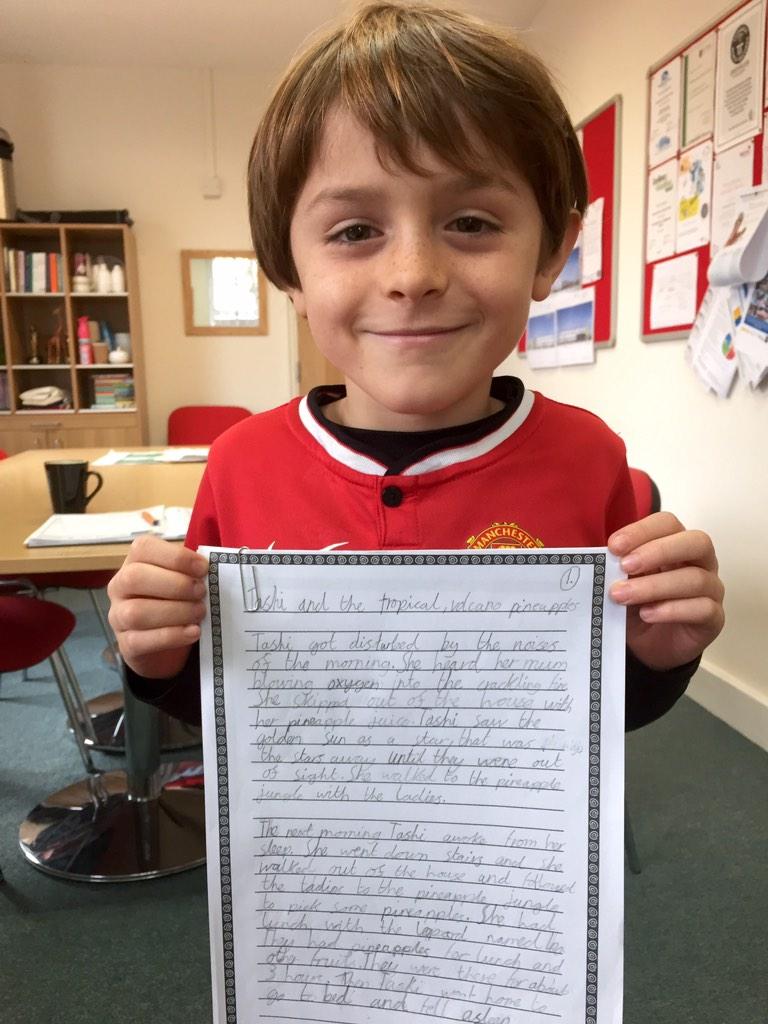 MANCHESTER
1.
Tashi and the tropical, volcano pineapples
Tashi got distarbed by the noises
of the morning. She heard her mum
blowing oxygen into the crackling fire
She skipped out of the house with
her pineapple juice. Tashi saw the
golden sun as a star, that was
the stars away until they were out
of sight. She walked to the pineapple
jungle with the ladies.
The next morning Tashi awoke from her
sleep. She went down stairs and she
walked out of the house and followed
the ladies to the pineapple jungle
to pick some pineapples. She had
lunch with the named
They had pineapples for lunch and
other fruits. They were there for about
3 hours. Then Tashi went home to
go to bed and fell asleep